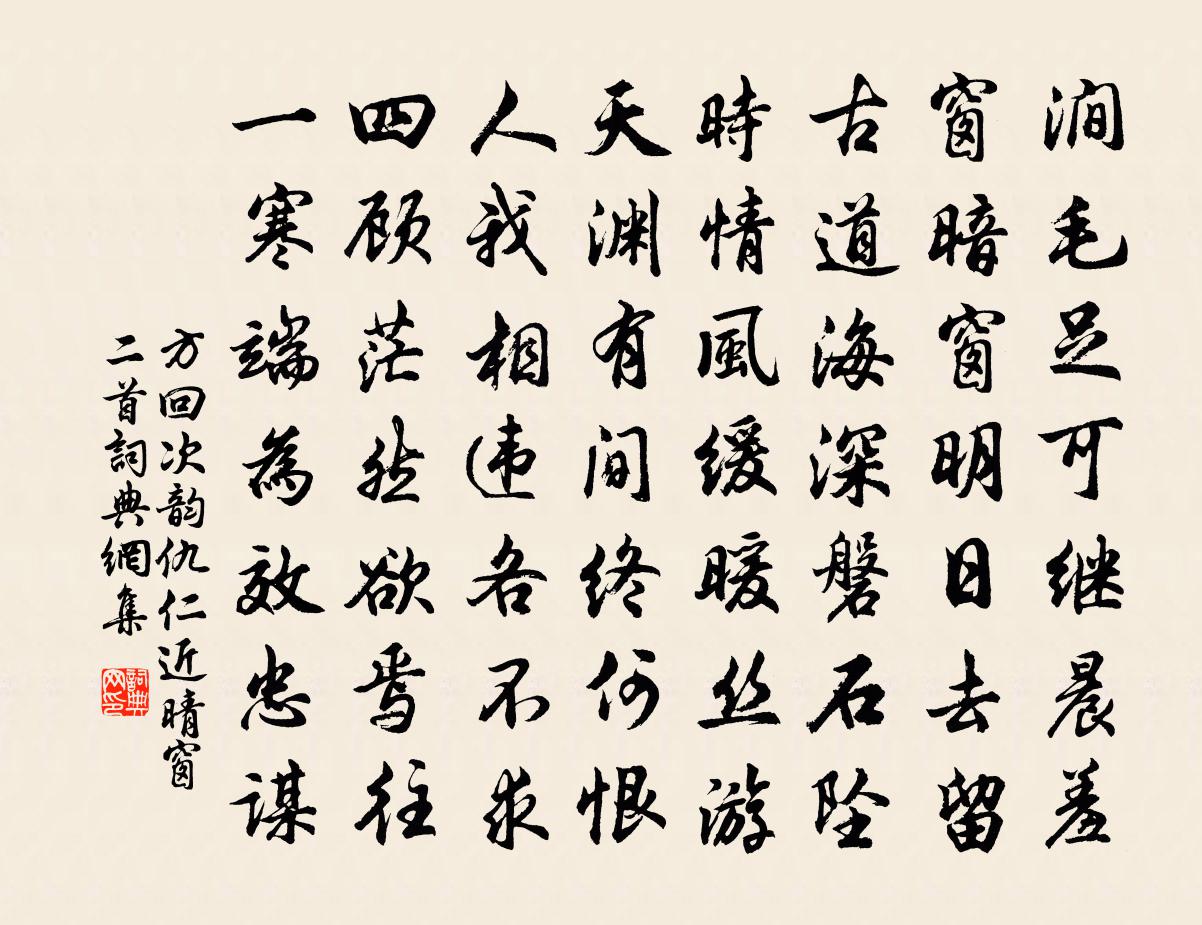 澗毛足可继晨羞
窗暗窗明日去留
古道海深磐石坠
時情風缓暖丝游
天渊有间终何恨
人我相违各不求
四顾茫然欲焉往
一寒端為效忠谋
方回次韵仇仁近晴窗
二首詞典網集
詞典网印